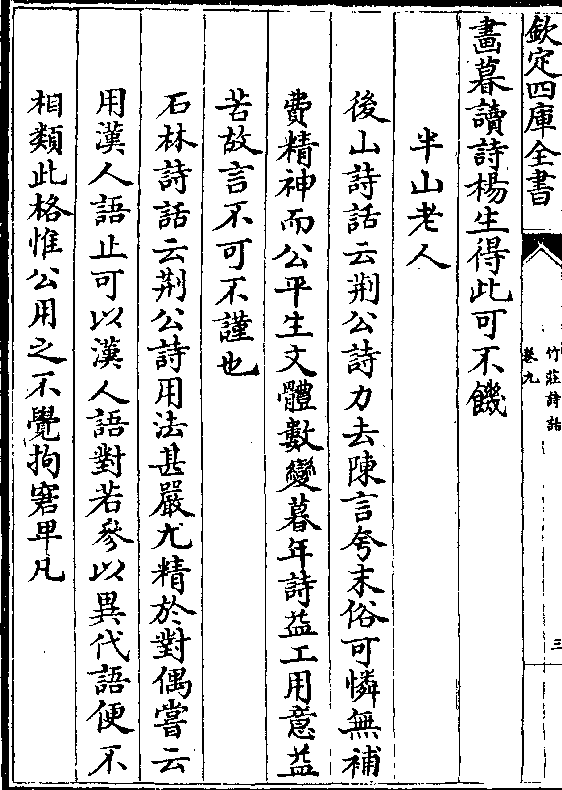 欽定四庫全書
竹莊詩話
卷九
三
畫暮讀詩楊生得此可不饑
半山老人
後山詩話云荆公詩力去陳言夸末俗可憐無補
費精神而公平生文體數變暮年詩益工用意益
苦故言不可不謹也
石林詩話云荆公詩用法甚嚴尤精於對偶嘗云
用漢人語止可以漢人語對若參以異代語便不
相類此格惟公用之不覺拘窘卑凡